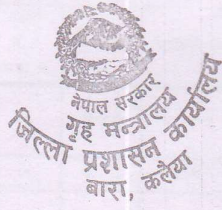 नेपाल सरकार
गृह मन्त्रालय
जिल्ला प्रशासन कार्यालय
बारा, कलैया